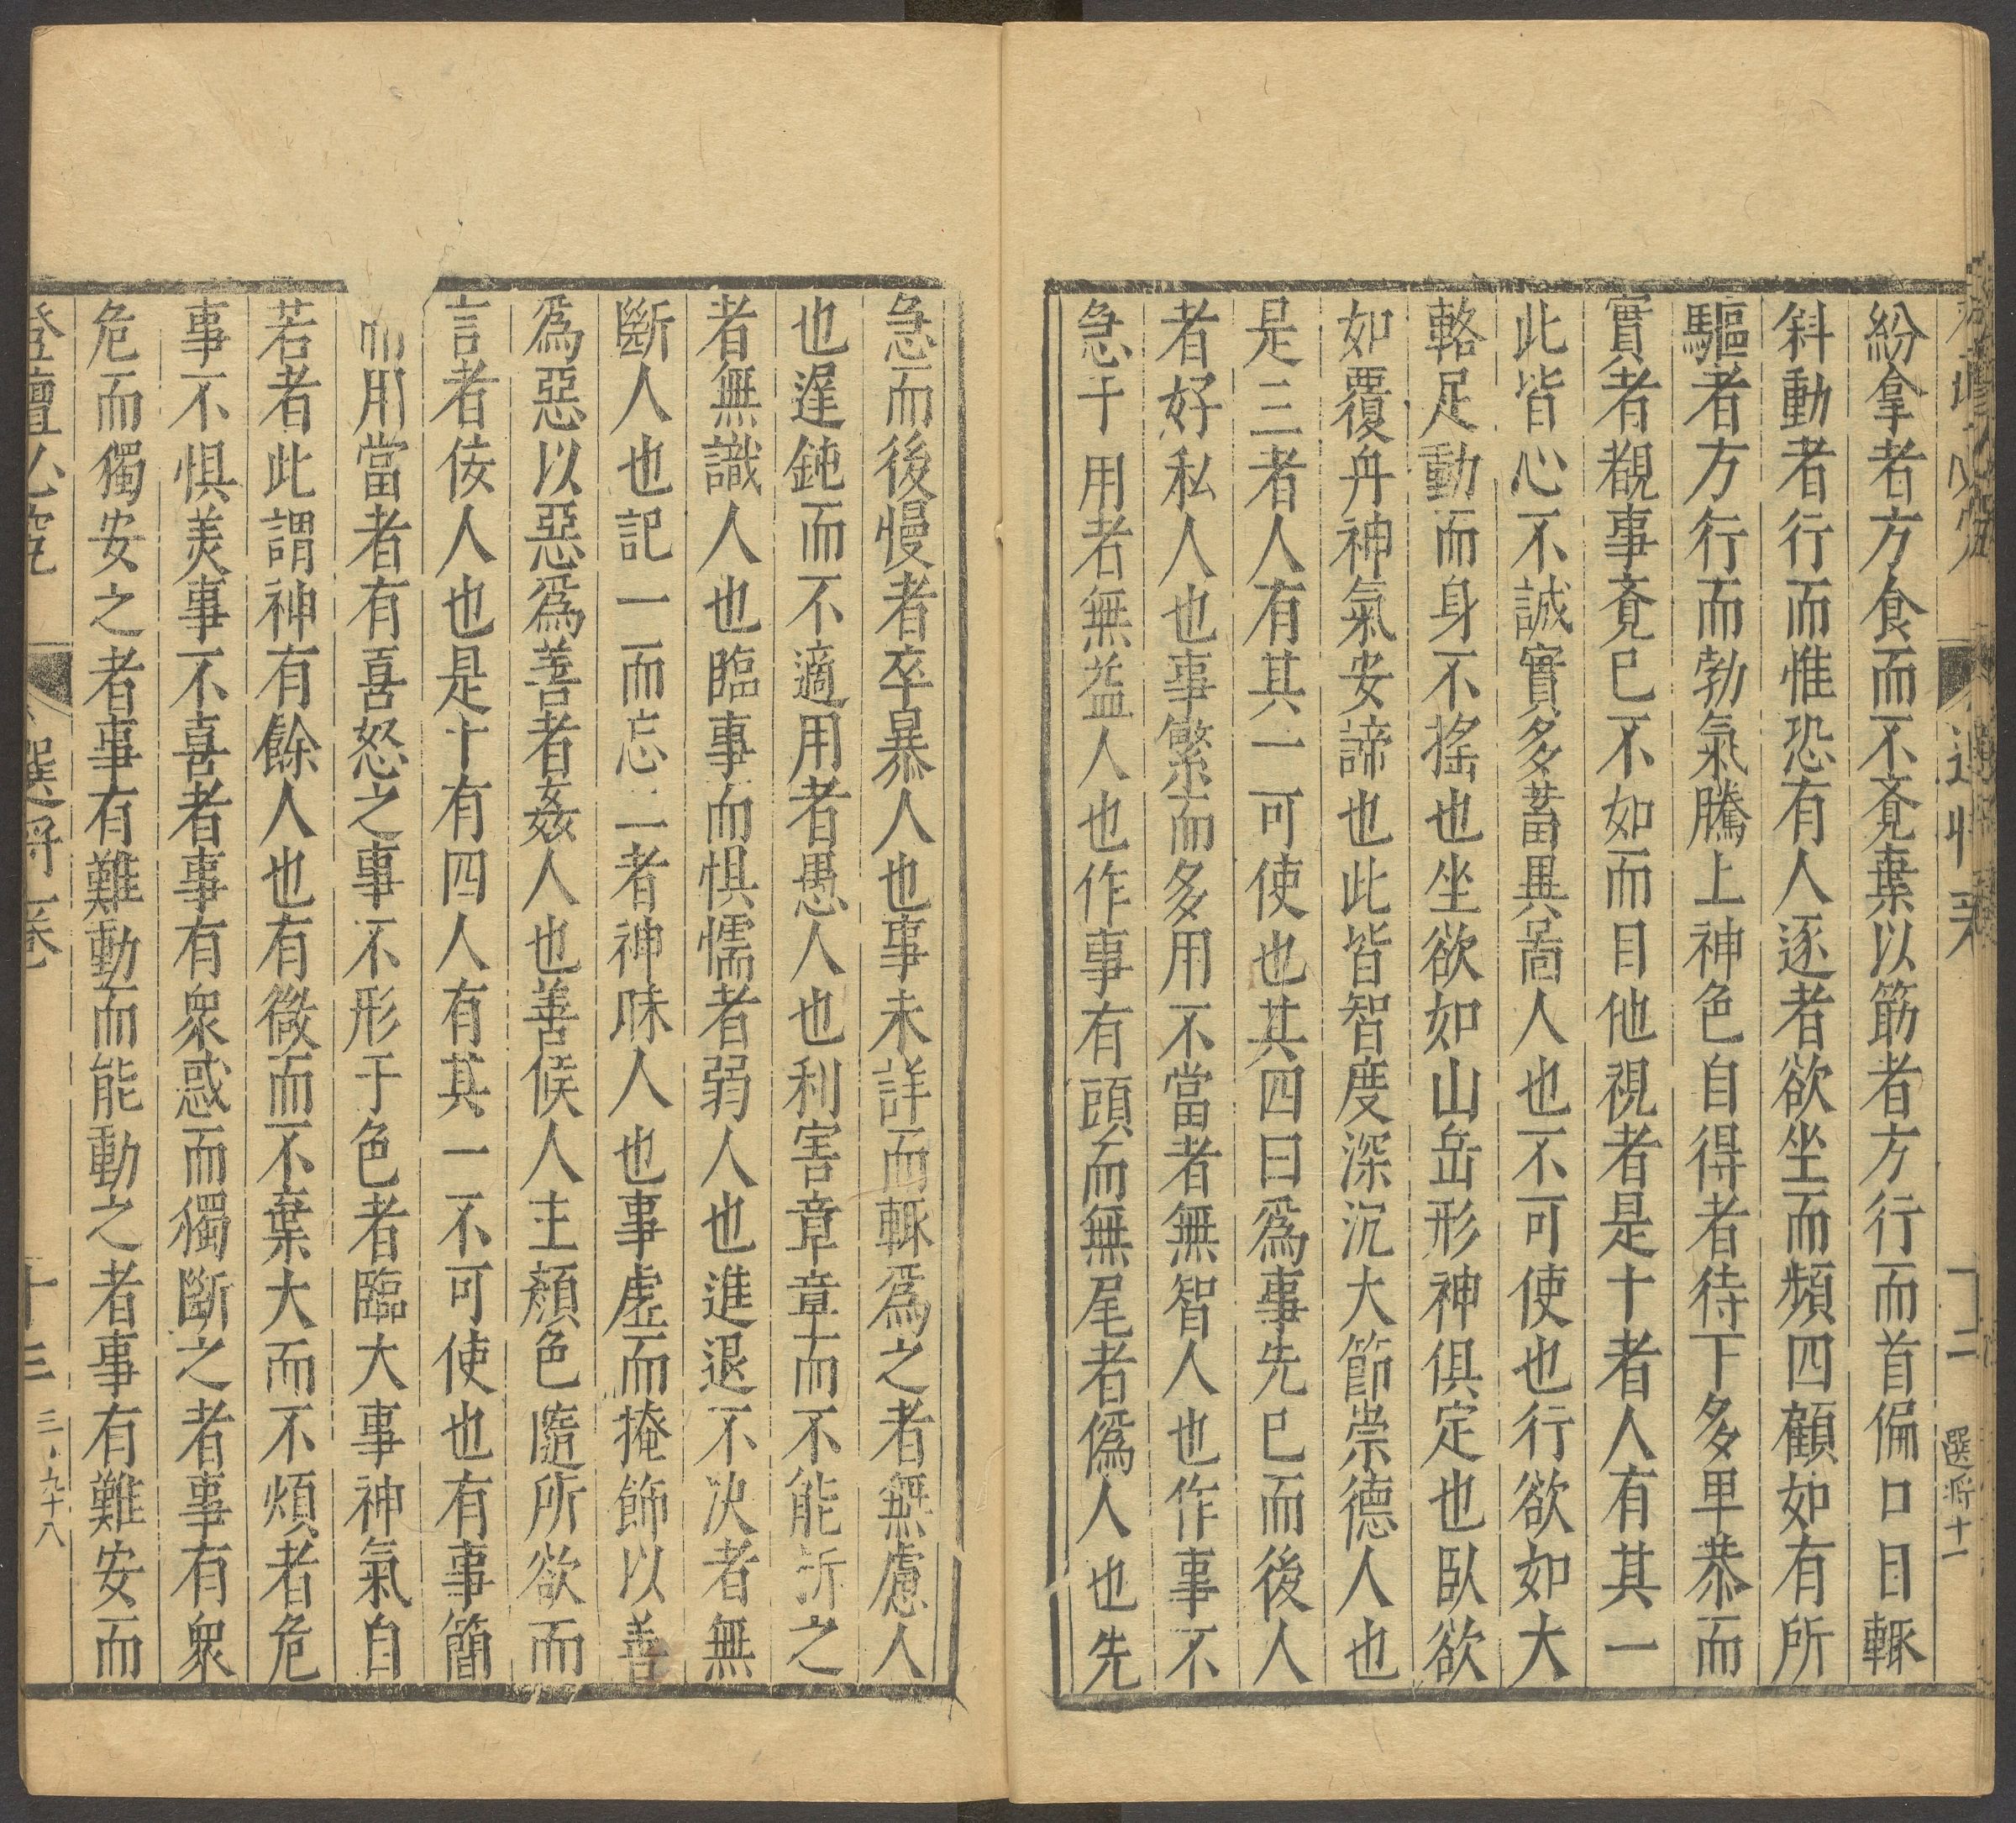 紛拿者方食而不覔棄以筋者方行而首偏口目輙
斜動者行而惟恐有人逐者欲坐而頻四顧如有所
驅者方行而勃氣騰上神色自得者待下多卑恭而
實者覩事覔巳不如而目他視者是十者人有其一
此皆心不誠實多蓄異啚人也不可使也行欲如大
輅足動而身不搖也坐欲如山岳形神俱定也臥欲
如覆舟神氣安諦也此皆智度深沉大節崇德人也
是三者人有其一可使也其四曰爲事先巳而後人
者好私人也事繁而多用不當者無智人也作事不
急于用者無益人也作事有頭而無尾者僞人也先
選將十一
急而後慢者卒暴人也事未詳而輙爲之者無慮人
也遅鈍而不適用者愚人也利害章章而不能折之
者無識人也臨事而惧懦者弱人也進退不决者無
斷人也記一而忘二者神昧人也事虛而掩飾以善
爲惡以惡爲善者姦人也善候人主顏色隨所欲而
言者佞人也是十有四人有其一不可使也有事簡
而用當者有喜怒之事不形于色者臨大事神氣自
若者此謂神有餘人也有微而不棄大而不煩者危
事不惧美事不喜者事有衆惑而獨斷之者事有衆
危而獨安之者事有難動而能動之者事有難安而
登壇必究
選將一卷
十三
三·九十八